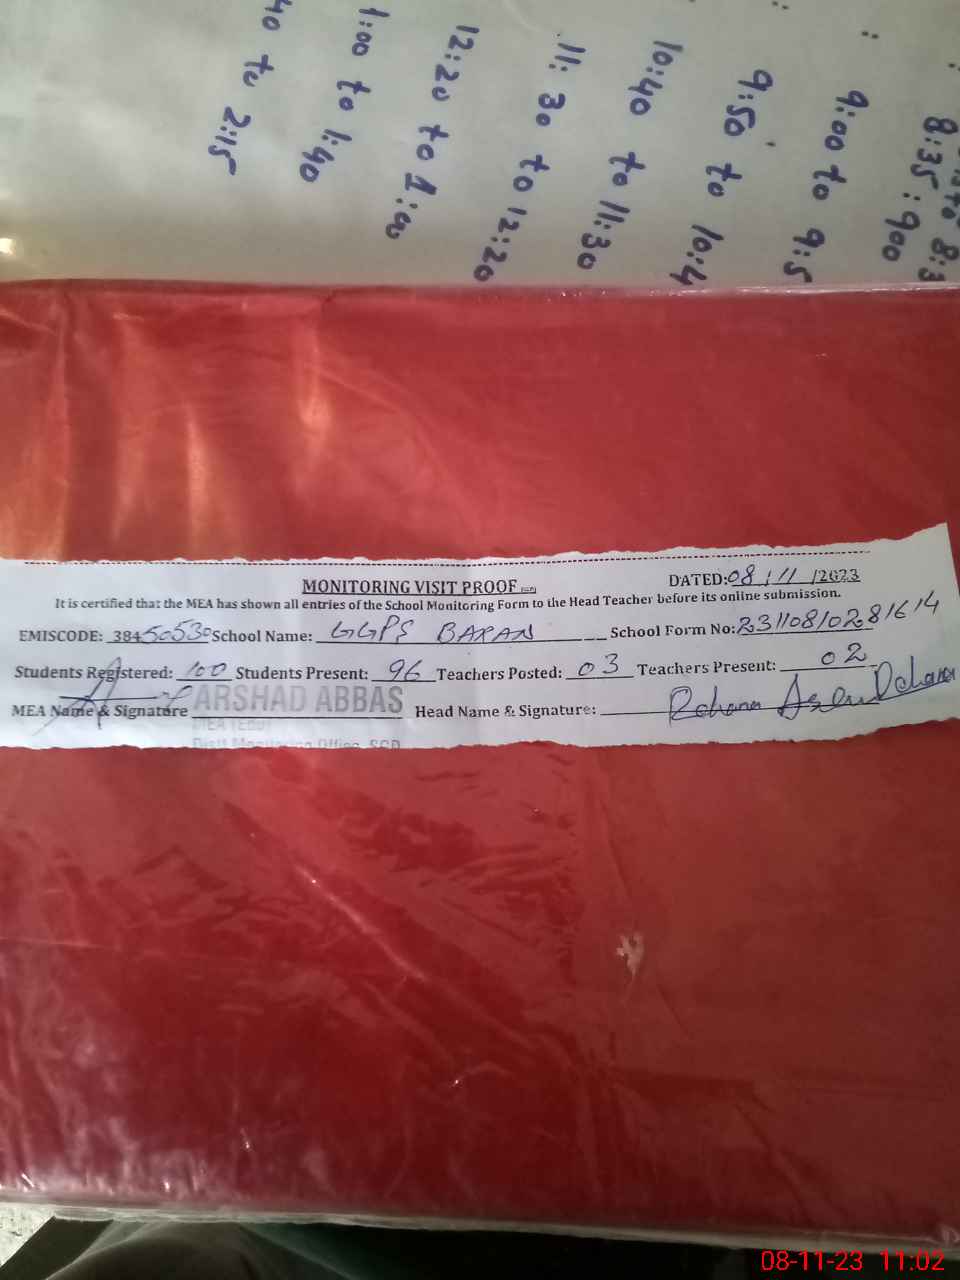 40 to 2:15
1:00 to 1:40
12:20 to 1:00
11:30 to 12:20
10:40 to 11:30
9:50 to 10:4
9:00 to 9:5
8:35 : 900
to 8:3
MONITORING VISIT PROOF
DATED: 08/11/2023
It is certified that the MEA has shown all entries of the School Monitoring Form to the Head Teacher before its online submission.
EMISCODE: 38450530 School Name: GGPS BAPAN School Form No: 23110810281614
Students Registered: 100 Students Present: 96 Teachers Posted: 03 Teachers Present: 02
MEA Name & Signature ARSHAD ABBAS Head Name & Signature: Rehana
MEA
Distt Monitoring Office, SGD
08-11-23 11:02